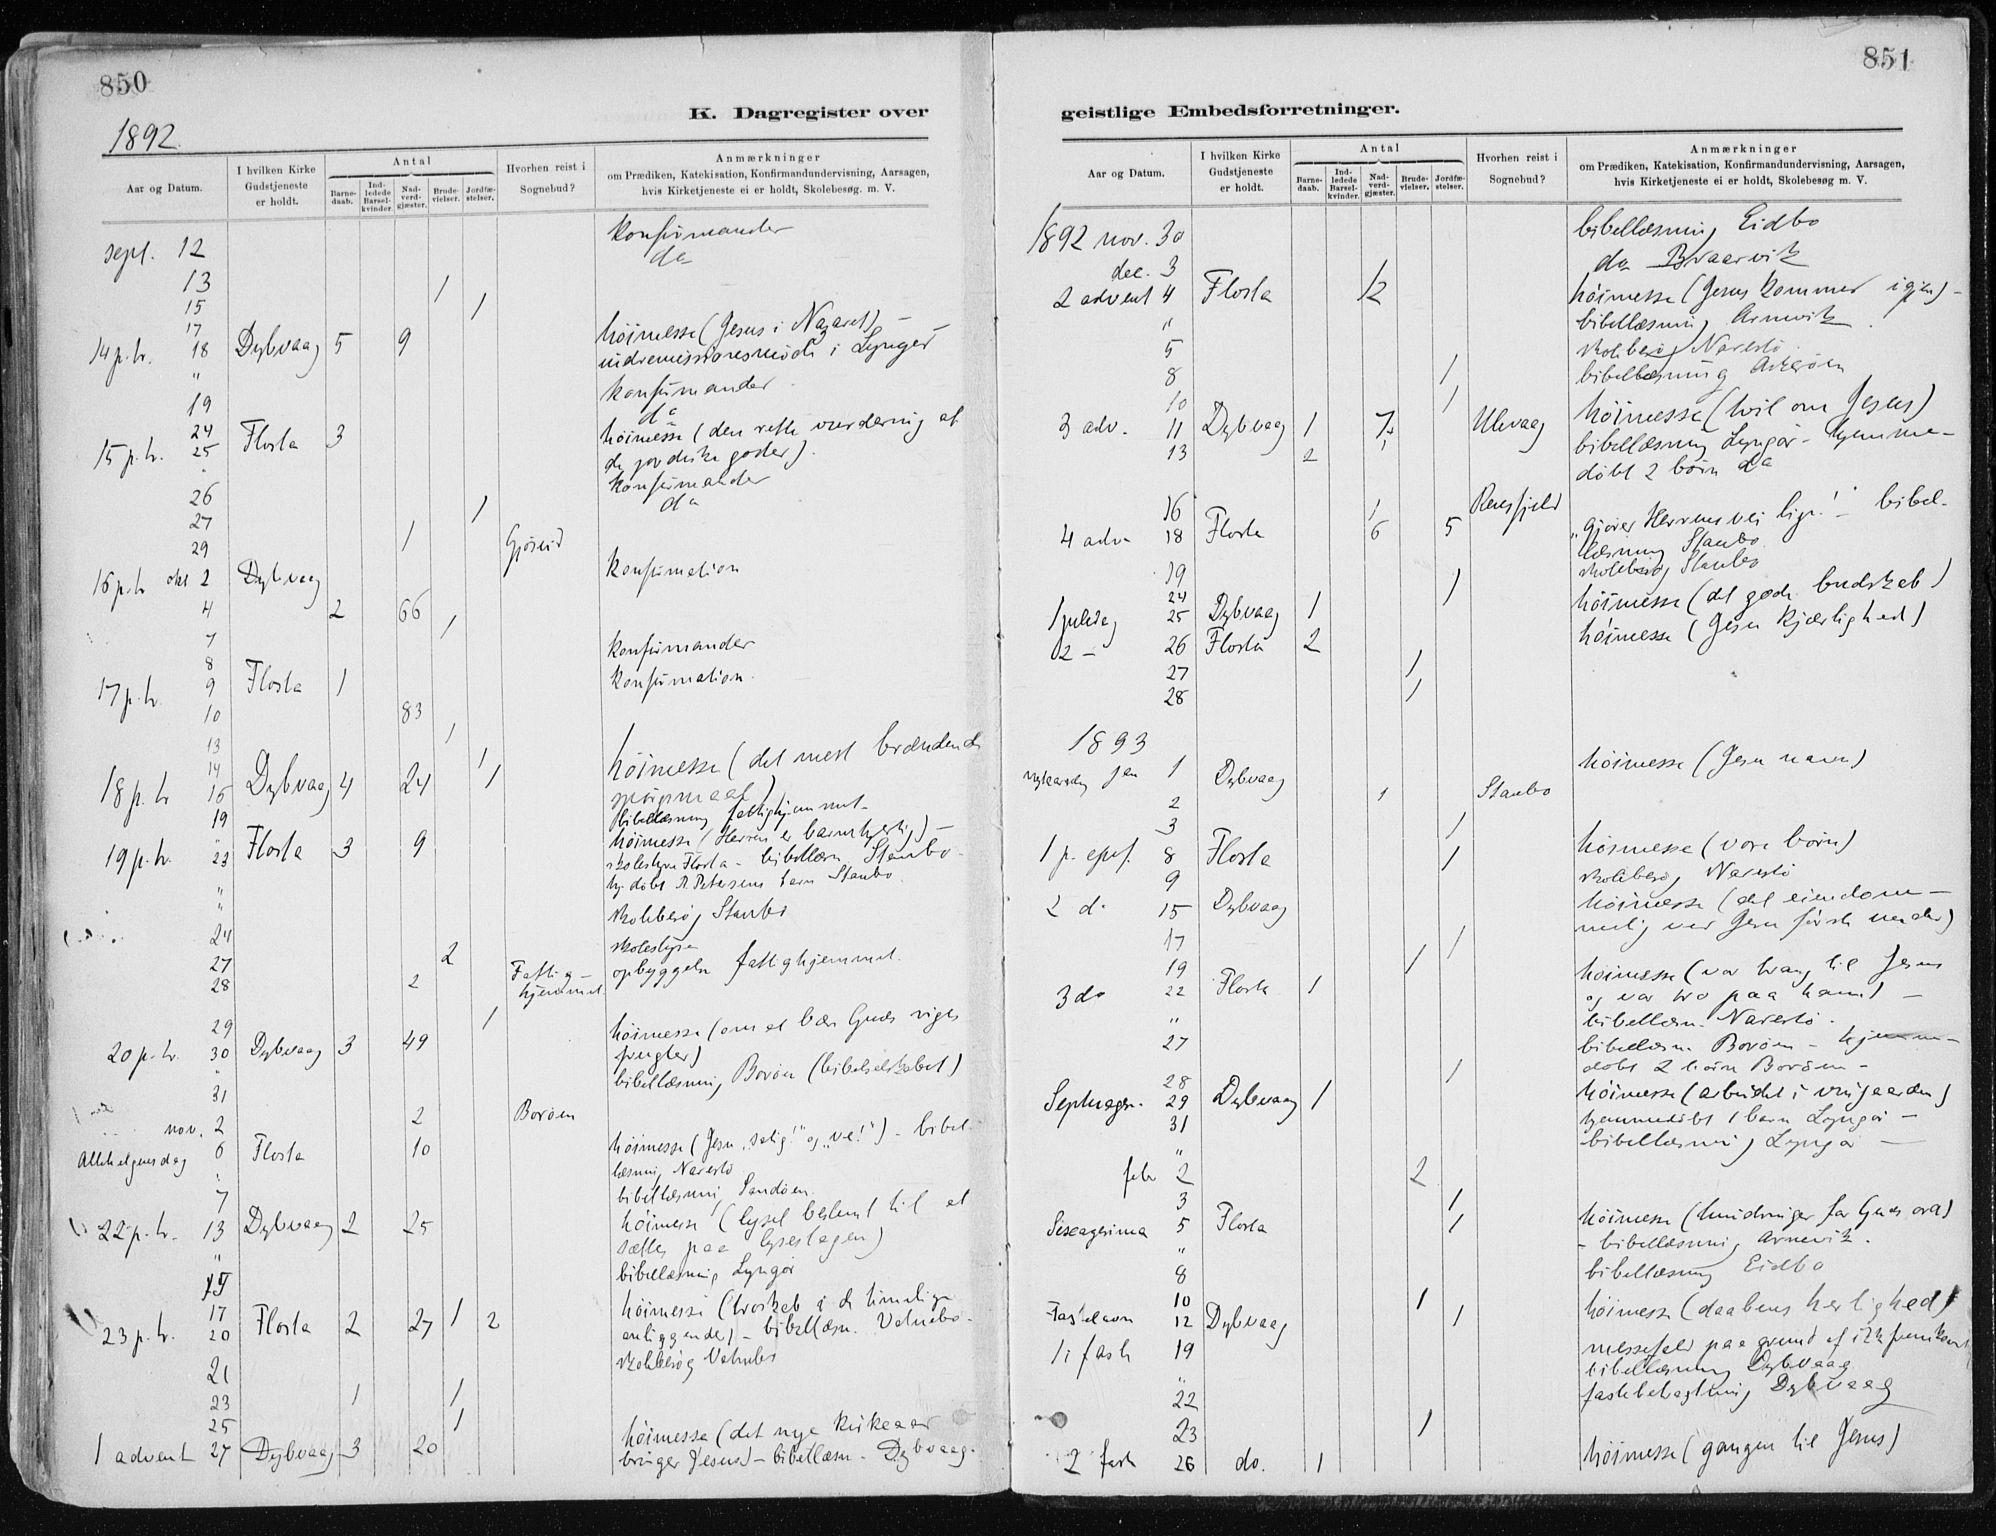 850
K. Dagregister over
1892
Aar og Datum.
I hvilken Kirke Gudstjeneste er holdt.
Antal
Barnedaab.
Indledede Barselkvinder.
Nadverdgjæster.
Brudevielser.
Jordfæstelser.
Hvorhen reist i Sognebud?
Anmærkninger
om Prædiken, Katekisation, Konfirmandundervisning, Aarsagen,
hvis Kirketjeneste ei er holdt, Skolebesøg. m. V.
sept. 12 konfirmander
13 do
15 1
17 1
14 p. tr. 18 Dybvaag 5 9 höimesse (Jesus i Nazaret) –
" indremissionsmöde i Lyngör
19 konfirmander
24 do
15 p. tr. 25 Flosta 3 höimesse (den rette vurdering af
de jordiske goder).
26 konfirmander
27 do
29 1
16 p. tr. okt 2 Dybvaag konfirmation
4 2 66
7 1
8 konfirmander
17 p. tr. 9 Flosta 1 konfirmation
10 83
13 1
14 1
18 p. tr 16 Dybvaag 4 24 1 höimesse (det mest brændende
spörgsmaal)
19 bibellæsning fattighjemmet
19 p. tr. 23 Flosta 3 9 höimesse (Herren er barmhjertig) –
skolestyre Flosta – bibellæsn. Staubo –
hj. döbt P. Petersens barn Staubo
24 skolebesög Staubo
27 2 skolestyre
28 2 Fattighjemmet opbyggelse fattighjemmet.
29 1
20 p. tr. 30 Dybvaag 3 49 höimesse (om at bære Guds riges
frugter)
31 bibellæsning Boröen (bibelselskabet)
nov. 2 2 Boröen
Allehelgensdag 6 Flosta 10 höimesse (Jesu "salig!" og "ve!") – bibel-
læsning Narestö
7 bibellæsning Sandöen
22 p. tr. 13 Dybvaag 2 25 höimesse (lyset bestemt til at
sættes paa lysestagen)
" bibellæsning Lyngör
15
17
23 p. tr. 20 Flosta 2 27 1 2 höimesse (troskab i de timelige
anliggender) – bibellæsn. Vatnebo –
21 skolebesög Vatnebo
23 1 1
25 1
1 advent 27 Dybvaag 3 20 höimesse (det nye kirkeaar
bringer Jesus) – bibellæsn. Dybvaag.
851
geistlige Embedsforretninger.
Aar og Datum.
I hvilken Kirke Gudstjeneste er holdt.
Antal
Barnedaab.
Indledede Barselkvinder.
Nadverdgjæster.
Brudevielser.
Jordfæstelser.
Hvorhen reist i Sognebud?
Anmærkninger
om Prædiken, Katekisation, Konfirmandundervisning, Aarsagen,
hvis Kirketjeneste ei er holdt, Skolebesøg m. V.
1892 nov. 30 bibellæsning Eidbo
dec. 3 do Braarvik
2 advent 4 Flosta 12 höimesse (Jesus kommer igjen) –
" bibellæsning Arnevik
5 skolebesög Narestö
8 1 bibellæsning Askeröen
10 1
3 adv. 11 Dybvaag 1 7 Ulevaag höimesse (tvil om Jesus)
13 2 1 bibellæsning Lyngör – hjemme-
döbt 2 börn do
16 1
4 adv. 18 Flosta 6 5 "Gjörer Herrens vei lige!" – bibel-
læsning Staubo
19 skolebesög Staubo
24 1
1 juledag 25 Dybvaag 1 höimesse (det gode budskab)
2 – 26 Flosta 2 höimesse (Jesu kjærlighed)
27 1
28 1
1893
nytaarsdag jan 1 Dybvaag höimesse (Jesu navn)
2 1 Staubo
3 1
1 p. epif. 8 Flosta 1 höimesse (vore börn)
9 skolebesög Narestö
2 do 15 Dybvaag höimesse (det eiendom-
melig ved Jesu förste under)
17 1
19 1
3 do 22 Flosta 1 höimesse (vor trang til Jesus
og vor tro paa ham) –
" bibellæsn. Narestö –
27 bibellæsn. Boröen – hjemme-
döbt 2 börn Boröen –
28 1
Septuages. 29 Dybvaag 1 höimesse (arbeidet i vingaarden)
31 hjemmedöbt 1 barn Lyngör –
" bibellæsning Lyngör –
feb 2 2
3 1
Sexagesima 5 Flosta 1 höimesse (hindringer for Guds ord)
" – bibellæsning Arnevik.
8 bibellæsning Eidbo
10 1
Fastelavn 12 Dybvaag 1 höimesse (daabens herlighed)
1 i faste 19 messefald paa grund af
" bibellæsning Dybvaag
22 fastebetragtning Dybvaag
23 1
2 faste 26 do. 1 höimesse (gangen til Jesus)